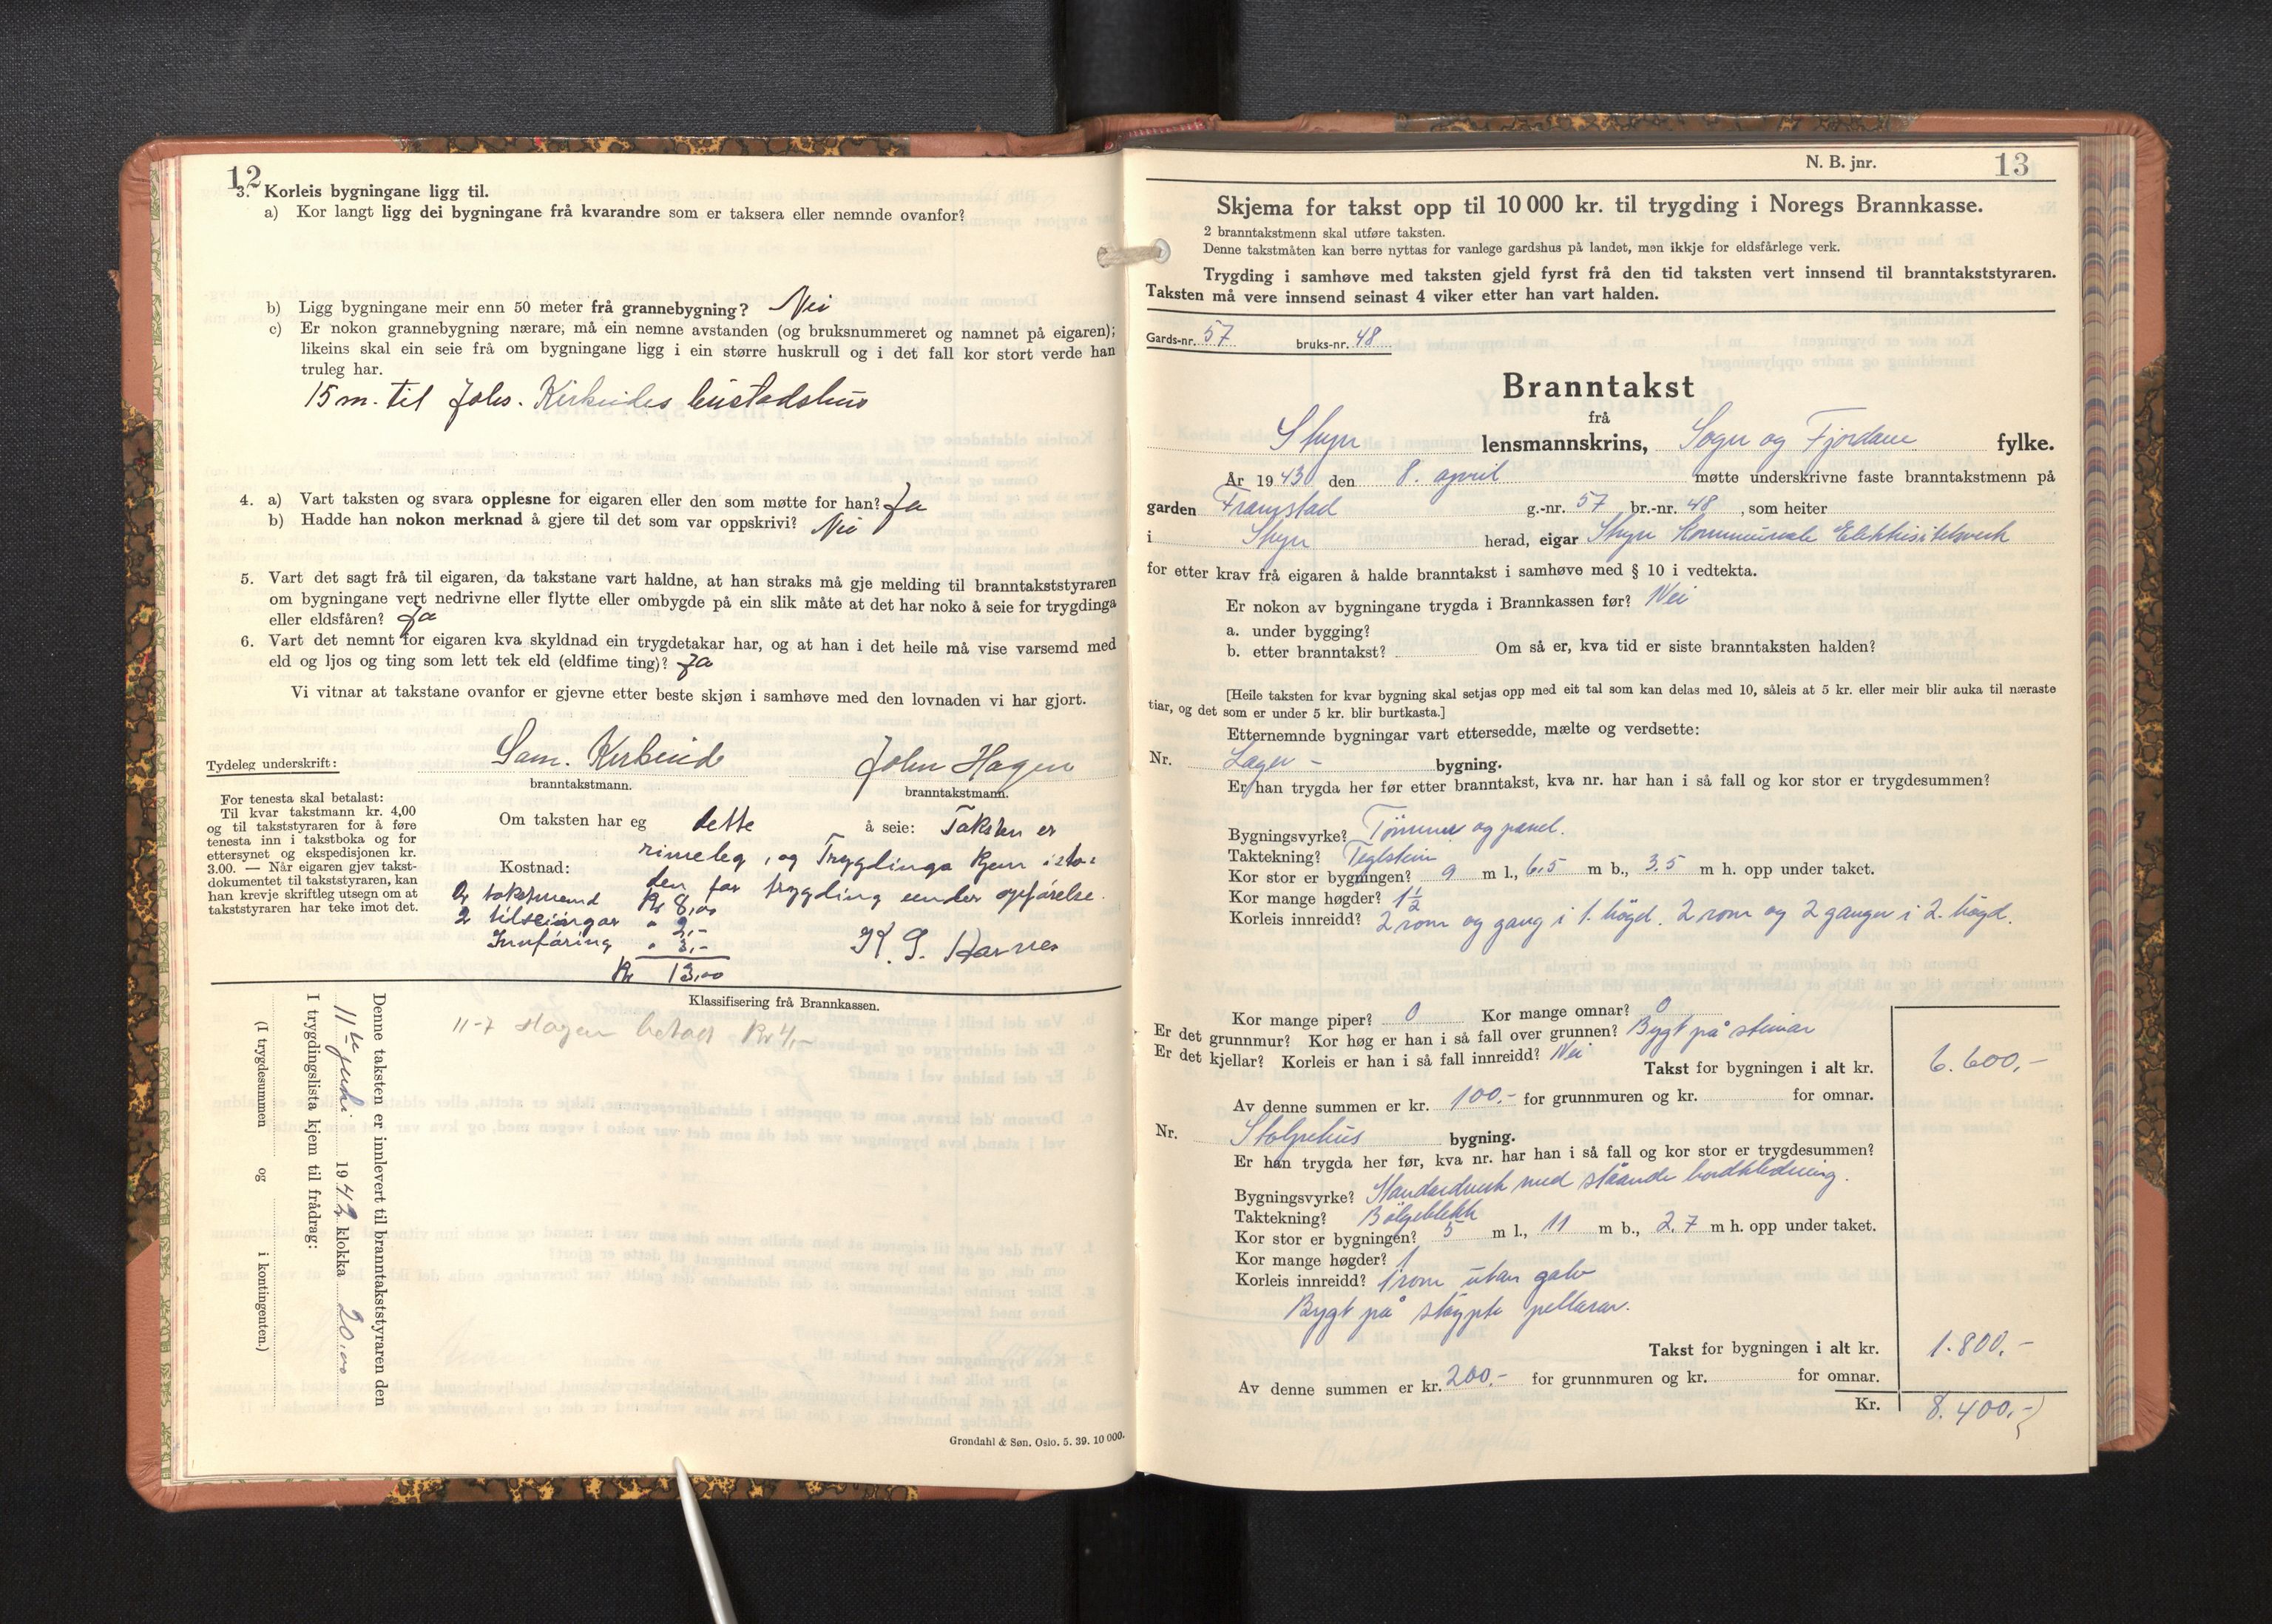 12
3. Korleis bygningane ligg til.
a) Kor langt ligg dei bygningane frå kvarandre som er taksera eller nemnde ovanfor?
b) Ligg bygningane meir enn 50 meter frå grannebygning? Nei
c) Er nokon grannebygning nærare, må ein nemne avstanden (og bruksnummeret og namnet på eigaren);
likeins skal ein seie frå om bygningane ligg i ein større huskrull og i det fall kor stort verde han
truleg har.
15 m. til Johs. Kirkeides bustadshus
4. a) Vart taksten og svara opplesne for eigaren eller den som møtte for han? Ja
b) Hadde han nokon merknad å gjere til det som var oppskrivi? Nei
5. Vart det sagt frå til eigaren, da takstane vart haldne, at han straks må gje melding til branntakststyraren
om bygningane vert nedrivne eller flytte eller ombygde på ein slik måte at det har noko å seie for trygdinga
eller eldsfåren? Ja
6. Vart det nemnt for eigaren kva skyldnad ein trygdetakar har, og at han i det heile må vise varsemd med
eld og ljos og ting som lett tek eld (eldfime ting)? Ja
Vi vitnar at takstane ovanfor er gjevne etter beste skjøn i samhøve med den lovnaden vi har gjort.
Tydeleg underskrift: Sam. Kirkeide John Hagen
branntakstmann. branntakstmann.
For tenesta skal betalast:
Til kvar takstmann kr. 4,00
og til takststyraren for å føre
tenesta inn i takstboka og for
ettersynet og ekspedisjonen kr.
3.00. — Når eigaren gjev takst-
dokumentet til takststyraren, kan
han krevje skriftleg utsegn om at
takststyraren har teke imot det.
Om taksten har eg dette å seie: Taksten er
rimeleg, og Trygdinga kjem i sta-
den for trygding under opførelse.
Kostnad:
2 takstmend Kr 8,00
2 tilseiingar " 2,-
Innføring " 3,-
Kr 13,00
K. S. Harnes
Klassifisering frå Brannkassen.
11-7 Hagen betalt Kr 4,-
Denne taksten er innlevert til branntakststyraren den
11te juni 1943 klokka 20,00
I trygdingslista kjem til frådrag:
(I trygdesummen og i kontingenten.)
Grøndahl & Søn. Oslo. 5. 39. 10 000.
N. B. jnr. 13
Skjema for takst opp til 10 000 kr. til trygding i Noregs Brannkasse.
2 branntakstmenn skal utføre taksten.
Denne takstmåten kan berre nyttas for vanlege gardshus på landet, men ikkje for eldsfårlege verk.
Trygding i samhøve med taksten gjeld fyrst frå den tid taksten vert innsend til branntakststyraren.
Taksten må vere innsend seinast 4 viker etter han vart halden.
Gards-nr. 57 bruks-nr. 48
Branntakst
frå
Stryn lensmannskrins, Sogn og Fjordane fylke.
År 1943 den 8. april møtte underskrivne faste branntakstmenn på
garden Framstad g.-nr. 57 br.-nr. 48, som heiter
i Stryn herad, eigar Stryn Kommunale Elektrisitetsverk
for etter krav frå eigaren å halde branntakst i samhøve med § 10 i vedtekta.
Er nokon av bygningane trygda i Brannkassen før? Nei
a. under bygging?
b. etter branntakst? Om så er, kva tid er siste branntaksten halden?
[Heile taksten for kvar bygning skal setjas opp med eit tal som kan delas med 10, såleis at 5 kr. eller meir blir auka til næraste
tiar, og det som er under 5 kr. blir burtkasta.]
Etternemnde bygningar vart ettersedde, mælte og verdsette:
Nr. Lager - bygning.
Er han trygda her før etter branntakst, kva nr. har han i så fall og kor stor er trygdesummen?
Bygningsvyrke? Tømmer og panel.
Taktekning? Teglstein
Kor stor er bygningen? 9 m l., 6,5 m b., 3.5 m h. opp under taket.
Kor mange høgder? 1½
Korleis innreidd? 2 rom og gang i 1. høgd. 2 rom og 2 ganger i 2. høgd.
Kor mange piper? 0 Kor mange omnar? 0
Er det grunnmur? Kor høg er han i så fall over grunnen? Bygt på steinar
Er det kjellar? Korleis er han i så fall innreidd? Nei
Takst for bygningen i alt kr. 6.600,-
Av denne summen er kr. 100.- for grunnmuren og kr. for omnar.
Nr. Stolpehus bygning.
Er han trygda her før, kva nr. har han i så fall og kor stor er trygdesummen?
Bygningsvyrke? Standardverk med ståande bordkledning.
Taktekning? Bølgeblekk
Kor stor er bygningen? 5 m l., 11 m b., 2.7 m h. opp under taket.
Kor mange høgder? 1
Korleis innreidd? 1 rom utan golv
Bygt på støypte pellarar.
Takst for bygningen i alt kr. 1.800.-
Av denne summen er kr. 200.- for grunnmuren og kr. for omnar.
Kr. 8.400.-